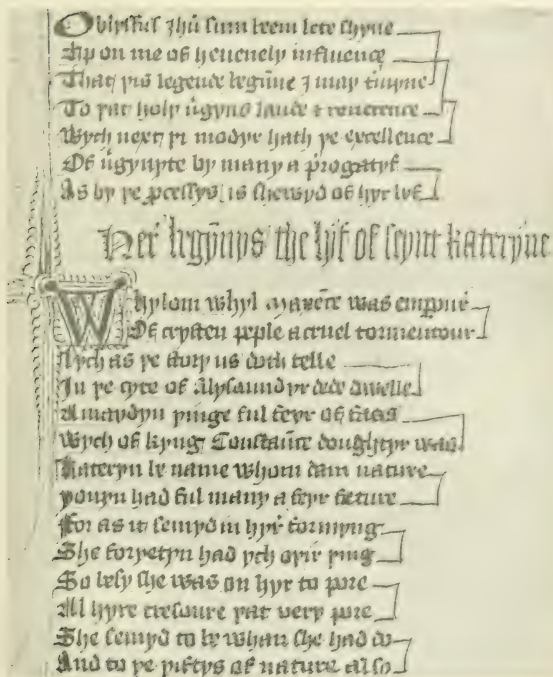 O blyssful Jhu sum beem lete shyne
Up on me of heuenely influence
That yis legende begūne I may t'myne
To yat holy v̄gyns laude & reuerence
Wych next yi modyr hath ye excellence
Of v̄gynyte by many a p'rogatyf
As by ye p̱cessys is shewyd of hyr lyf
Her' begȳnys the lyf of seynt kateryne
Whylom whyl Maxēce was emp̱our
Of crysten peple a cruel tormentour
Sych as ye story us doth telle
In ye cyte of Alysaundyr dede dwelle
A maydyn yinge ful feyr of faas
Wych of kyng Constaūce doughtyr was
Kateryn be name whom dam nature
youyn had ful many a feyr feture
For as it semyd in hyr formyng
She foryetyn had ych oyir ying
So besy she was on hyr to pore
Al hyre tresoure yat very pore
She semyd to be whan she had do
And to ye yiftys of nature also